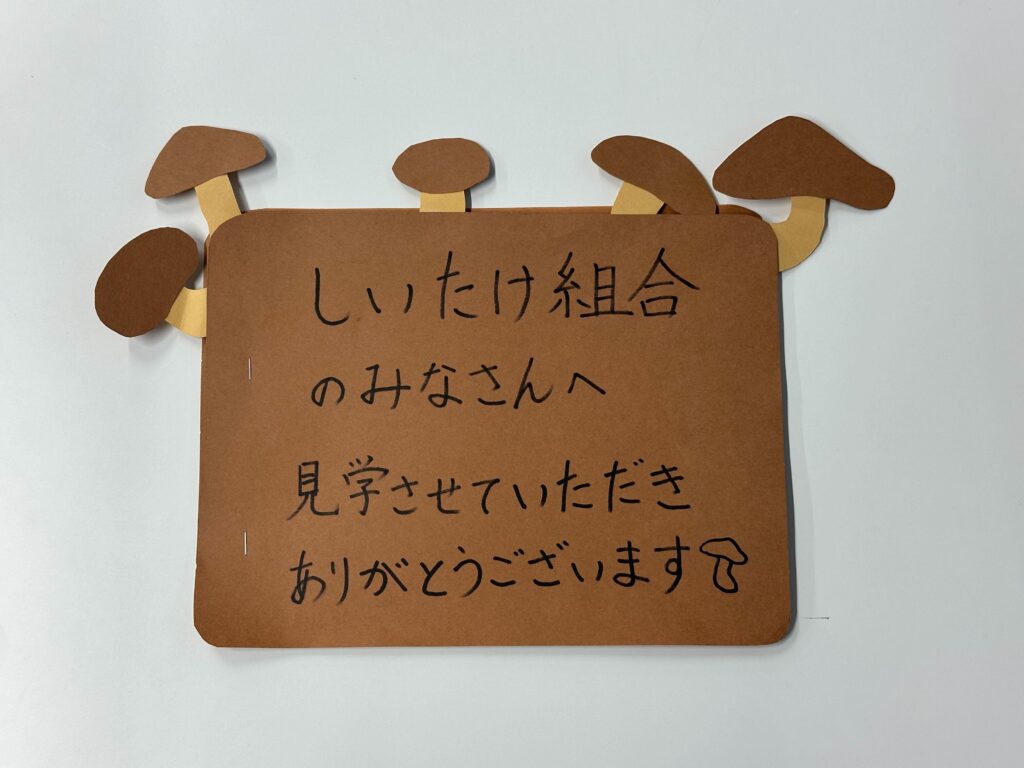 しいたけ組合
のみなさんへ
見学させていただき
ありがとうございます